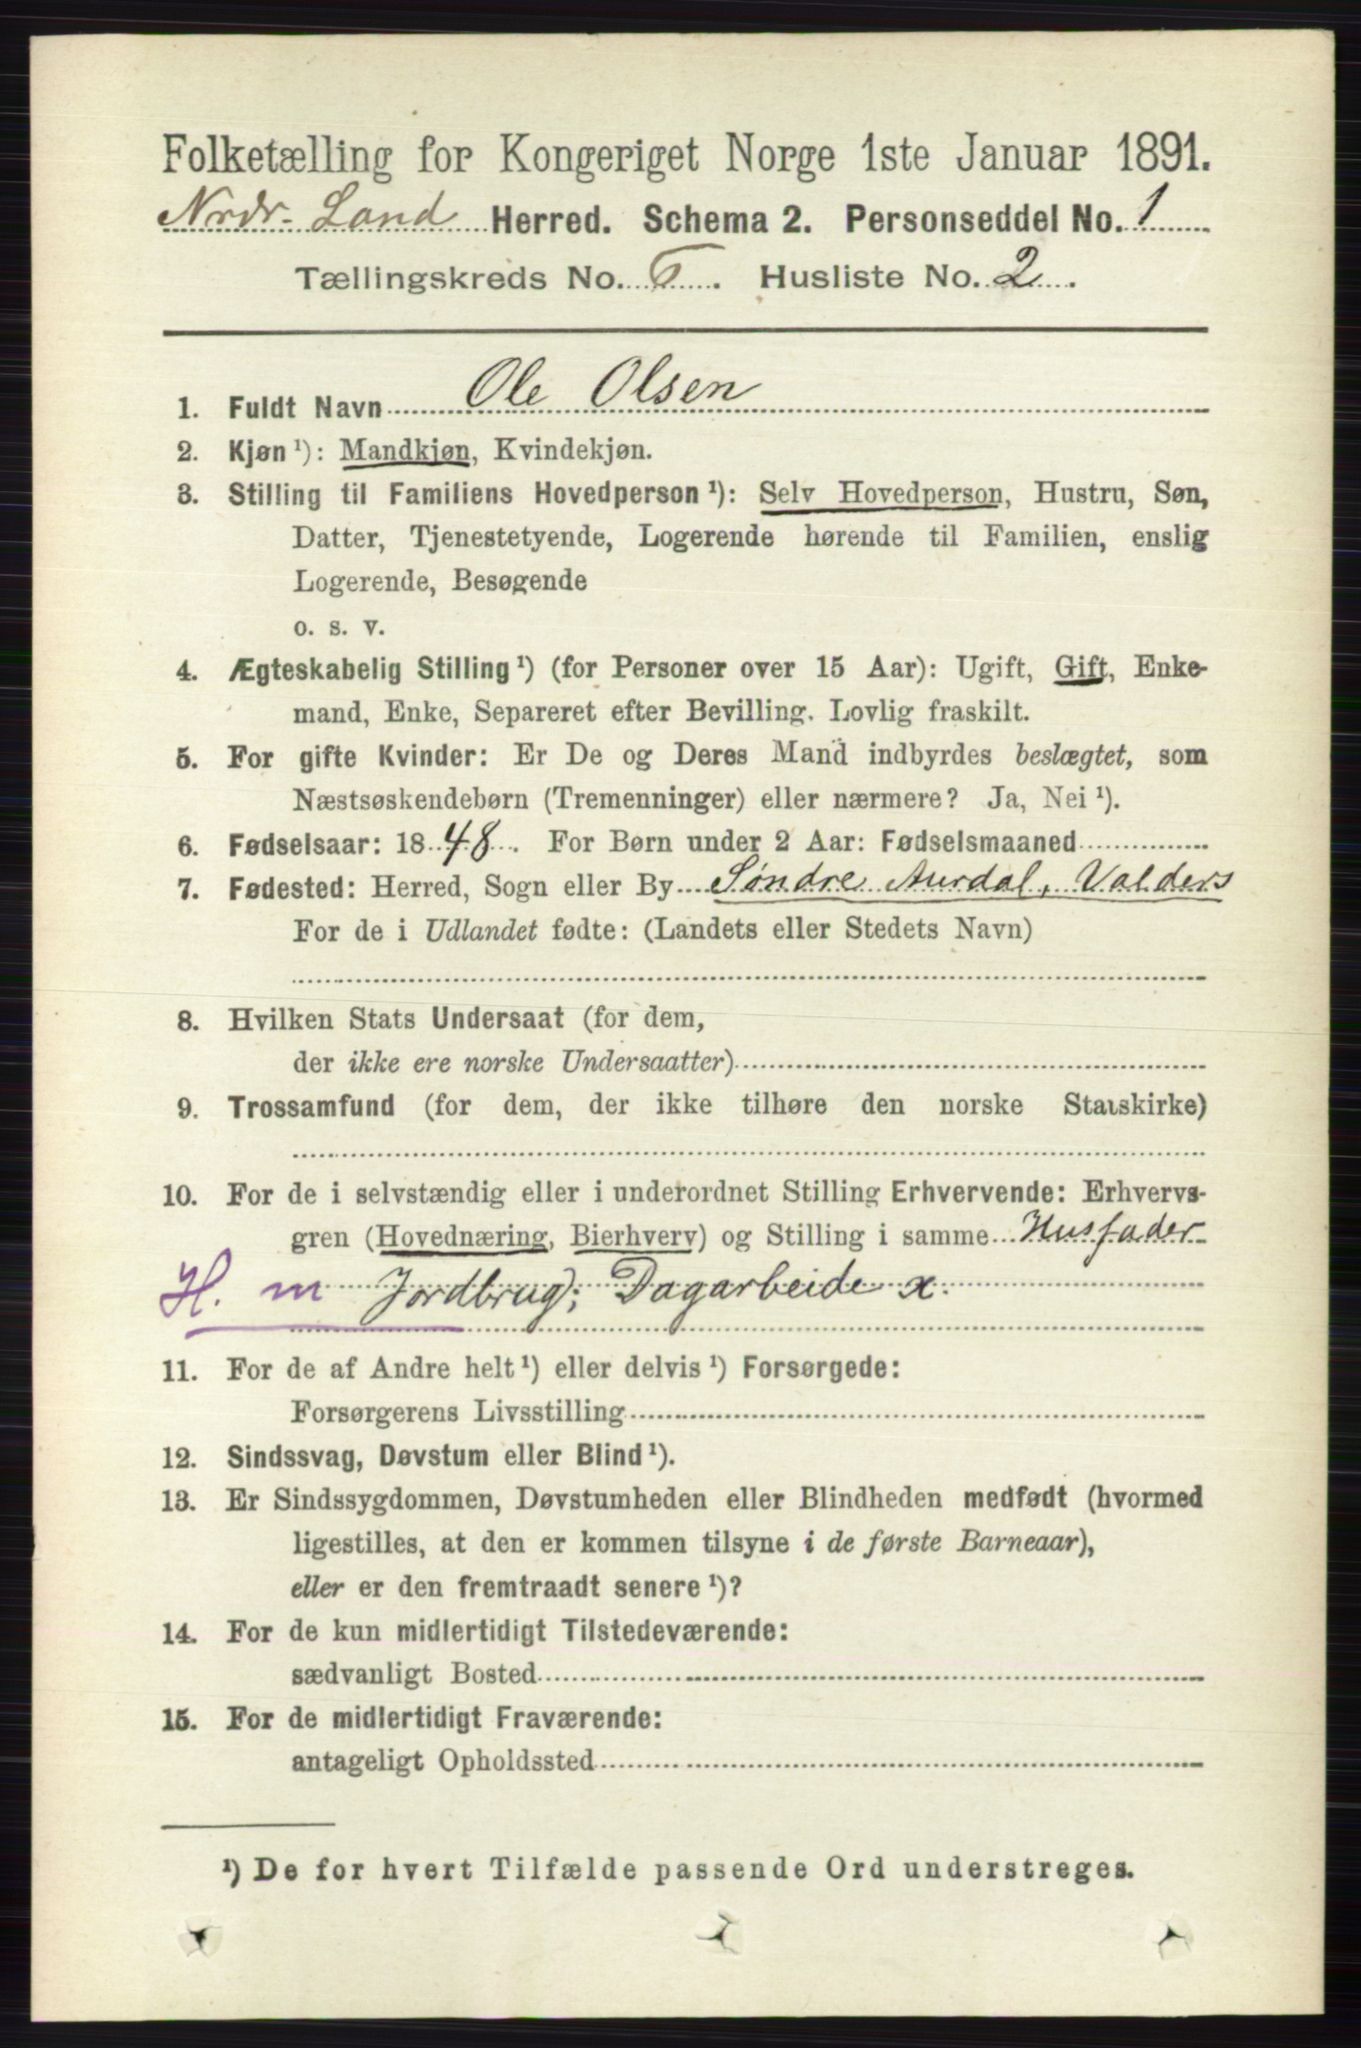 Folketælling for Kongeriget Norge 1ste Januar 1891.
Nrdr. Land Herred. Schema 2. Personseddel No. 1
Tællingskreds No. 6. Husliste No. 2.
1. Fuldt Navn Ole Olsen
2. Kjøn ¹): Mandkjøn, Kvindekjøn.
3. Stilling til Familiens Hovedperson ¹): Selv Hovedperson, Hustru, Søn,
Datter, Tjenestetyende, Logerende hørende til Familien, enslig
Logerende, Besøgende
o. s. v.
4. Ægteskabelig Stilling ¹) (for Personer over 15 Aar): Ugift, Gift, Enke-
mand, Enke, Separeret efter Bevilling. Lovlig fraskilt.
5. For gifte Kvinder: Er De og Deres Mand indbyrdes beslægtet, som
Næstsøskendebørn (Tremenninger) eller nærmere? Ja, Nei ¹).
6. Fødselsaar: 1848. For Børn under 2 Aar: Fødselsmaaned
7. Fødested: Herred, Sogn eller By Søndre Aurdal, Valders
For de i Udlandet fødte: (Landets eller Stedets Navn)
8. Hvilken Stats Undersaat (for dem,
der ikke ere norske Undersaatter)
9. Trossamfund (for dem, der ikke tilhøre den norske Statskirke)
10. For de i selvstændig eller i underordnet Stilling Erhvervende: Erhvervs-
gren (Hovednæring, Bierhverv) og Stilling i samme Husfader
H. m Jordbrug; Dagarbeide x.
11. For de af Andre helt ¹) eller delvis ¹) Forsørgede:
Forsørgerens Livsstilling
12. Sindssvag, Døvstum eller Blind ¹).
13. Er Sindssygdommen, Døvstumheden eller Blindheden medfødt (hvormed
ligestilles, at den er kommen tilsyne i de første Barneaar),
eller er den fremtraadt senere ¹)?
14. For de kun midlertidigt Tilstedeværende:
sædvanligt Bosted
15. For de midlertidigt Fraværende:
antageligt Opholdssted
¹) De for hvert Tilfælde passende Ord understreges.